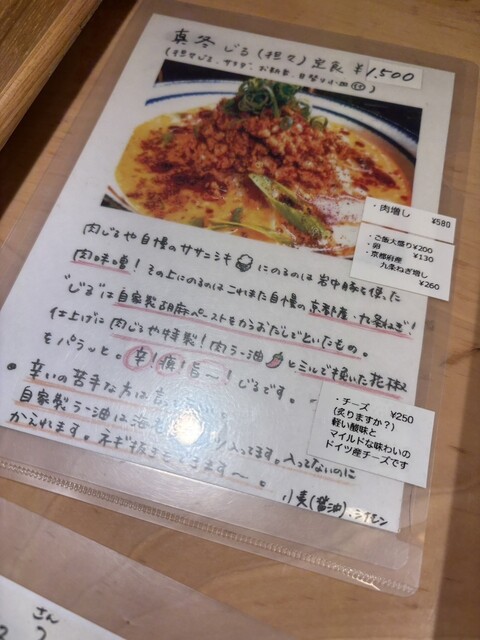 真冬 じる(担々)定食 ¥1,500
肉増し ¥580
・ご飯大盛り¥200
・卵 ¥130
・京都府産
九条ねぎ増し
¥260
肉じるや自慢のササニシキ🍚にのるのは岩中豚を使った
肉味噌！その上にのるのはこれまた自慢の京都産・九条ねぎ！
"じる"は自家製胡麻ペーストをかつおだしでといたもの。
仕上げに肉じるや特製！肉ラー油🌶とミルで挽いた花椒
をパラッと。辛！痺！旨〜！じるです。
・チーズ ¥250
(炙りますか？)
軽い酸味と
マイルドな味わいの
ドイツ産チーズです
・辛いの苦手な方は言
自家製ラー油は海 入ってます。入ってないのに
かえれます。ネギ抜き きます〜。
小麦(醤油)
さん